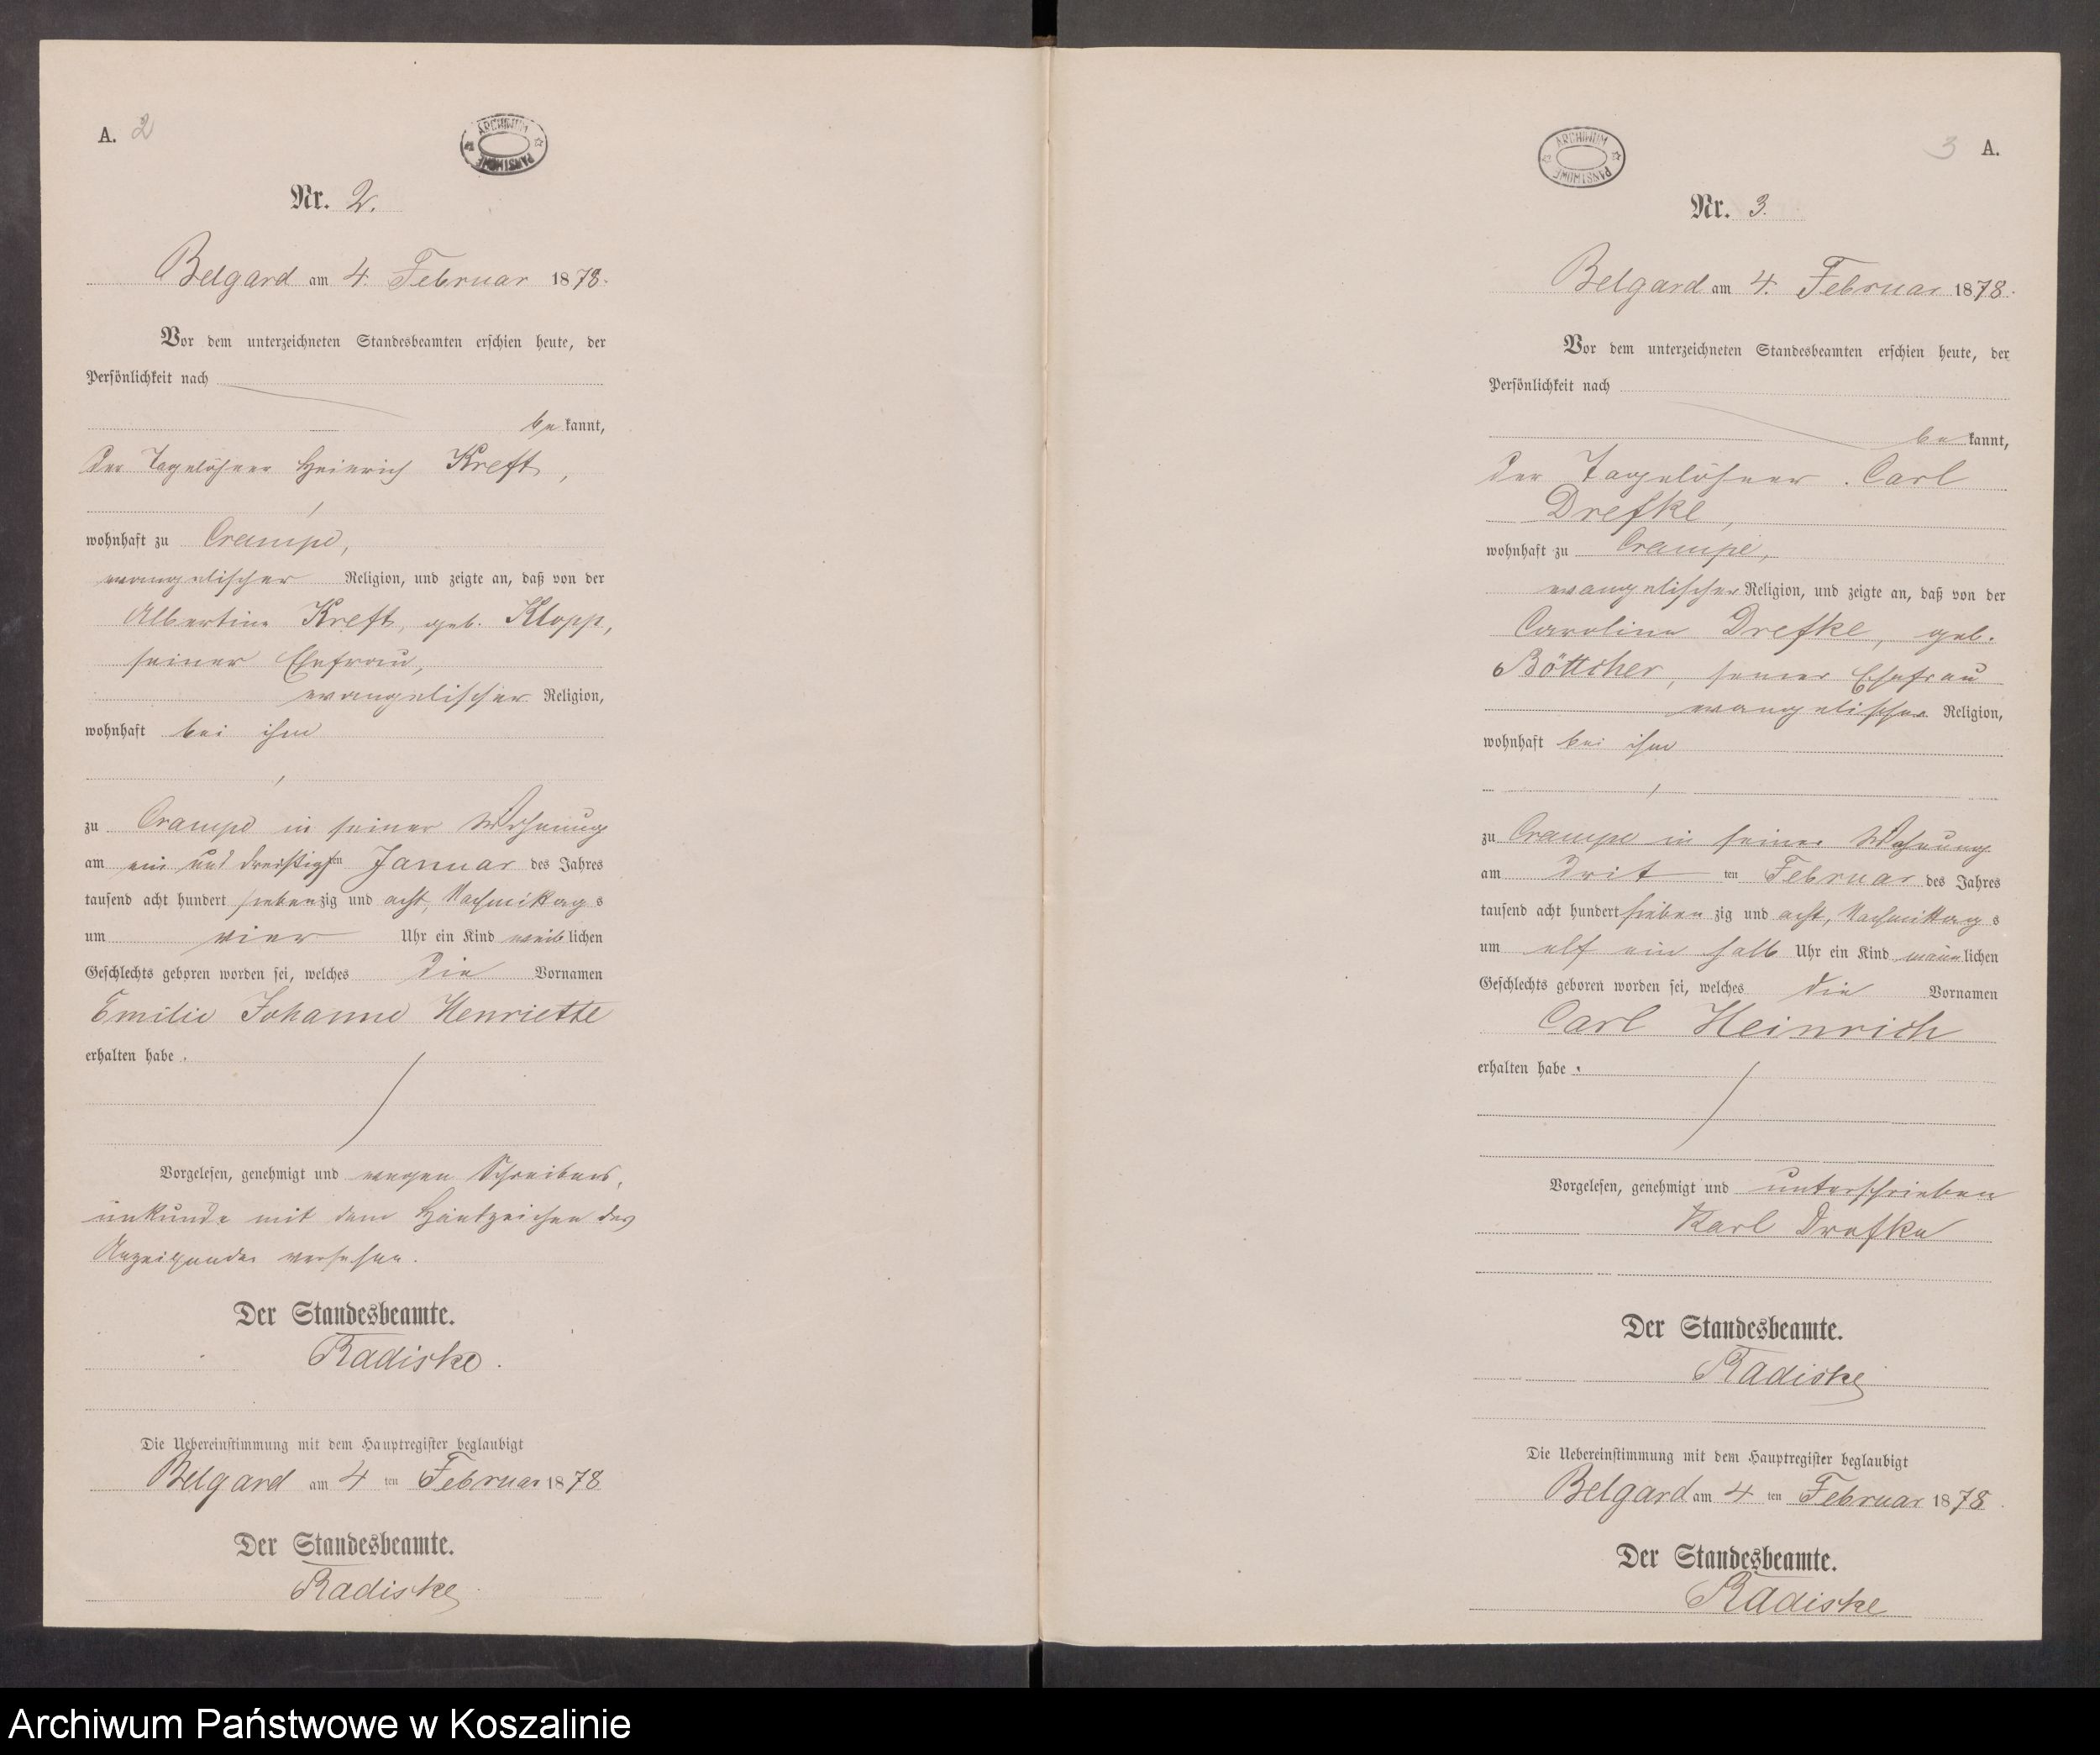 A. 2
ARCHIWUM PAŃSTWOWE
Nr. 2.
Belgard am 4. Februar 1878.
Vor dem unterzeichneten Standesbeamten erschien heute, der
Persönlichkeit nach
be kannt,
der Tagelöhner Heinrich Kreft,
wohnhaft zu Crampe,
evangelischer Religion, und zeigte an, daß von der
Albertine Kreft, geb. Klopp,
seiner Ehefrau,
evangelischer Religion,
wohnhaft bei ihm
,
zu Crampe in seiner Wohnung
am ein und dreißigsten Januar des Jahres
tausend acht hundert siebenzig und acht, Nachmittags
um vier Uhr ein Kind weiblichen
Geschlechts geboren worden sei, welches die Vornamen
Emilie Johanne Henriette
erhalten habe.
Vorgelesen, genehmigt und wegen Schreibens-
unkunde mit dem Handzeichen des
Anzeigenden versehen.
Der Standesbeamte.
Radiske.
Die Uebereinstimmung mit dem Hauptregister beglaubigt
Belgard am 4 ten Februar 1878
Der Standesbeamte.
Radiske
3 A.
ARCHIWUM PAŃSTWOWE
Nr. 3.
Belgard am 4. Februar 1878.
Vor dem unterzeichneten Standesbeamten erschien heute, der
Persönlichkeit nach
be kannt,
der Tagelöhner Carl
Drefke,
wohnhaft zu Crampe,
evangelischer Religion, und zeigte an, daß von der
Caroline Drefke, geb.
Böttcher, seiner Ehefrau
evangelischer Religion,
wohnhaft bei ihm
,
zu Crampe in seiner Wohnung
am drit ten Februar des Jahres
tausend acht hundert sieben zig und acht, Nachmittags
um elf ein halb Uhr ein Kind männlichen
Geschlechts geboren worden sei, welches die Vornamen
Carl Heinrich
erhalten habe.
Vorgelesen, genehmigt und unterschrieben
Karl Drefke
Der Standesbeamte.
Radiske
Die Uebereinstimmung mit dem Hauptregister beglaubigt
Belgard am 4 ten Februar 1878.
Der Standesbeamte.
Radiske
Archiwum Państwowe w Koszalinie